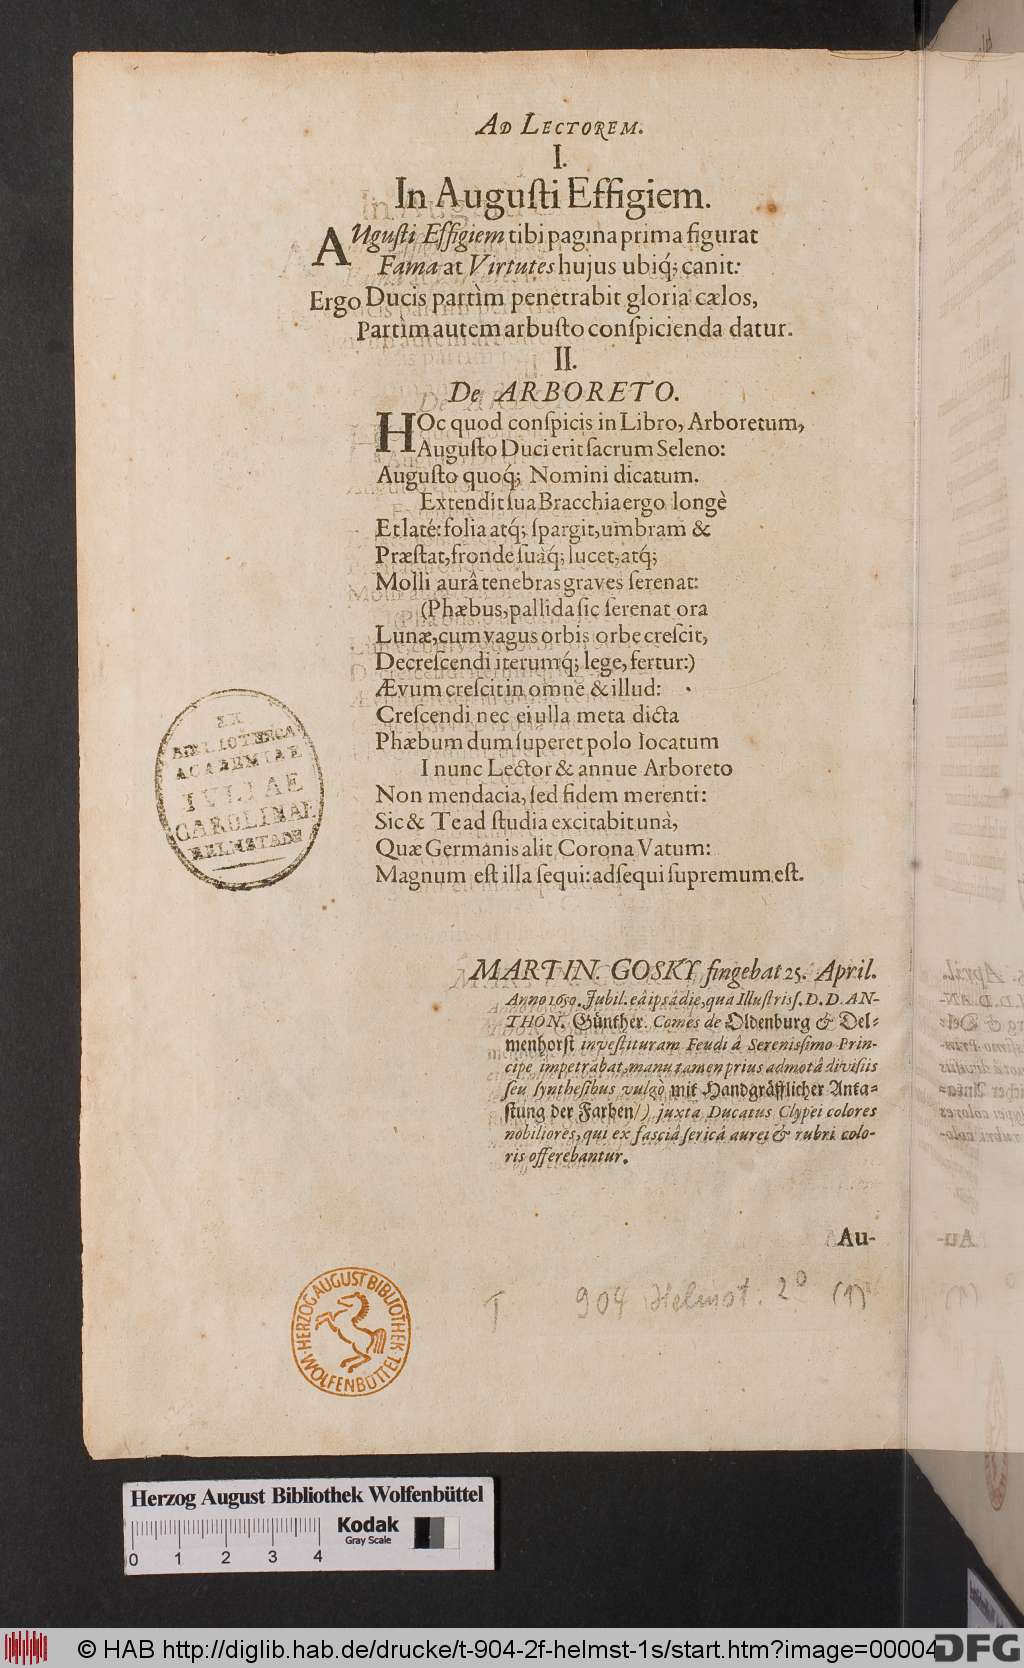 AD LECTOREM.
I.
In Auguſti Effigiem.
AUguſti Effigiem tibi pagina prima figurat
Fama at Virtutes hujus ubiq́; canit:
Ergo Ducis partìm penetrabit gloria cælos,
Partìm autem arbuſto conſpicienda datur.
II.
De ARBORETO.
HOc quod conſpicis in Libro, Arboretum,
Auguſto Duci erit ſacrum Seleno:
Auguſto quoq́; Nomini dicatum.
Extendit ſua Bracchia ergo longè
Et laté: folia atq́; ſpargit, umbram &
Præſtat, fronde ſuâq́; lucet, atq́;
Molli aurâ tenebras graves ſerenat:
(Phæbus, pallida ſic ſerenat ora
Lunæ, cum vagus orbis orbe creſcit,
Decreſcendi iterumq́; lege, fertur:)
Ævum creſcit in omne & illud:
Creſcendi nec ei ulla meta dicta
Phæbum dum ſuperet polo locatum
I nunc Lector & annue Arboreto
Non mendacia, ſed fidem merenti:
Sic & Te ad ſtudia excitabit unà,
Quæ Germanis alit Corona Vatum:
Magnum eſt illa ſequi: adſequi ſupremum eſt.
MARTIN. GOSKY fingebat 25. April.
Anno 1650. Jubil. eâ ipsâ die, quâ Illuſtriſſ. D. D. AN-
THON. Günther. Comes de Oldenburg & Del-
menhorſt inveſtituram Feudi â Sereniſſimo Prin-
cipe impetrabat, manu tamen prius admotâ diviſiis
ſeu ſyntheſibus vulgò mit Handgräfflicher Anta-
ſtung der Farben/) juxta Ducatus Clypei colores
nobiliores, qui ex faſciâ ſericâ aurei & rubri colo-
ris offerebantur.
Au-
EX
BIBLIOTHECA
ACADEMIAE
IVLIAE
CAROLINAE
HELMSTADII
HERZOG AUGUST BIBLIOTHEK
WOLFENBÜTTEL
T 904 Helmst. 2° (1)
Herzog August Bibliothek Wolfenbüttel
Kodak
Gray Scale
0 1 2 3 4
© HAB http://diglib.hab.de/drucke/t-904-2f-helmst-1s/start.htm?image=00004
DFG